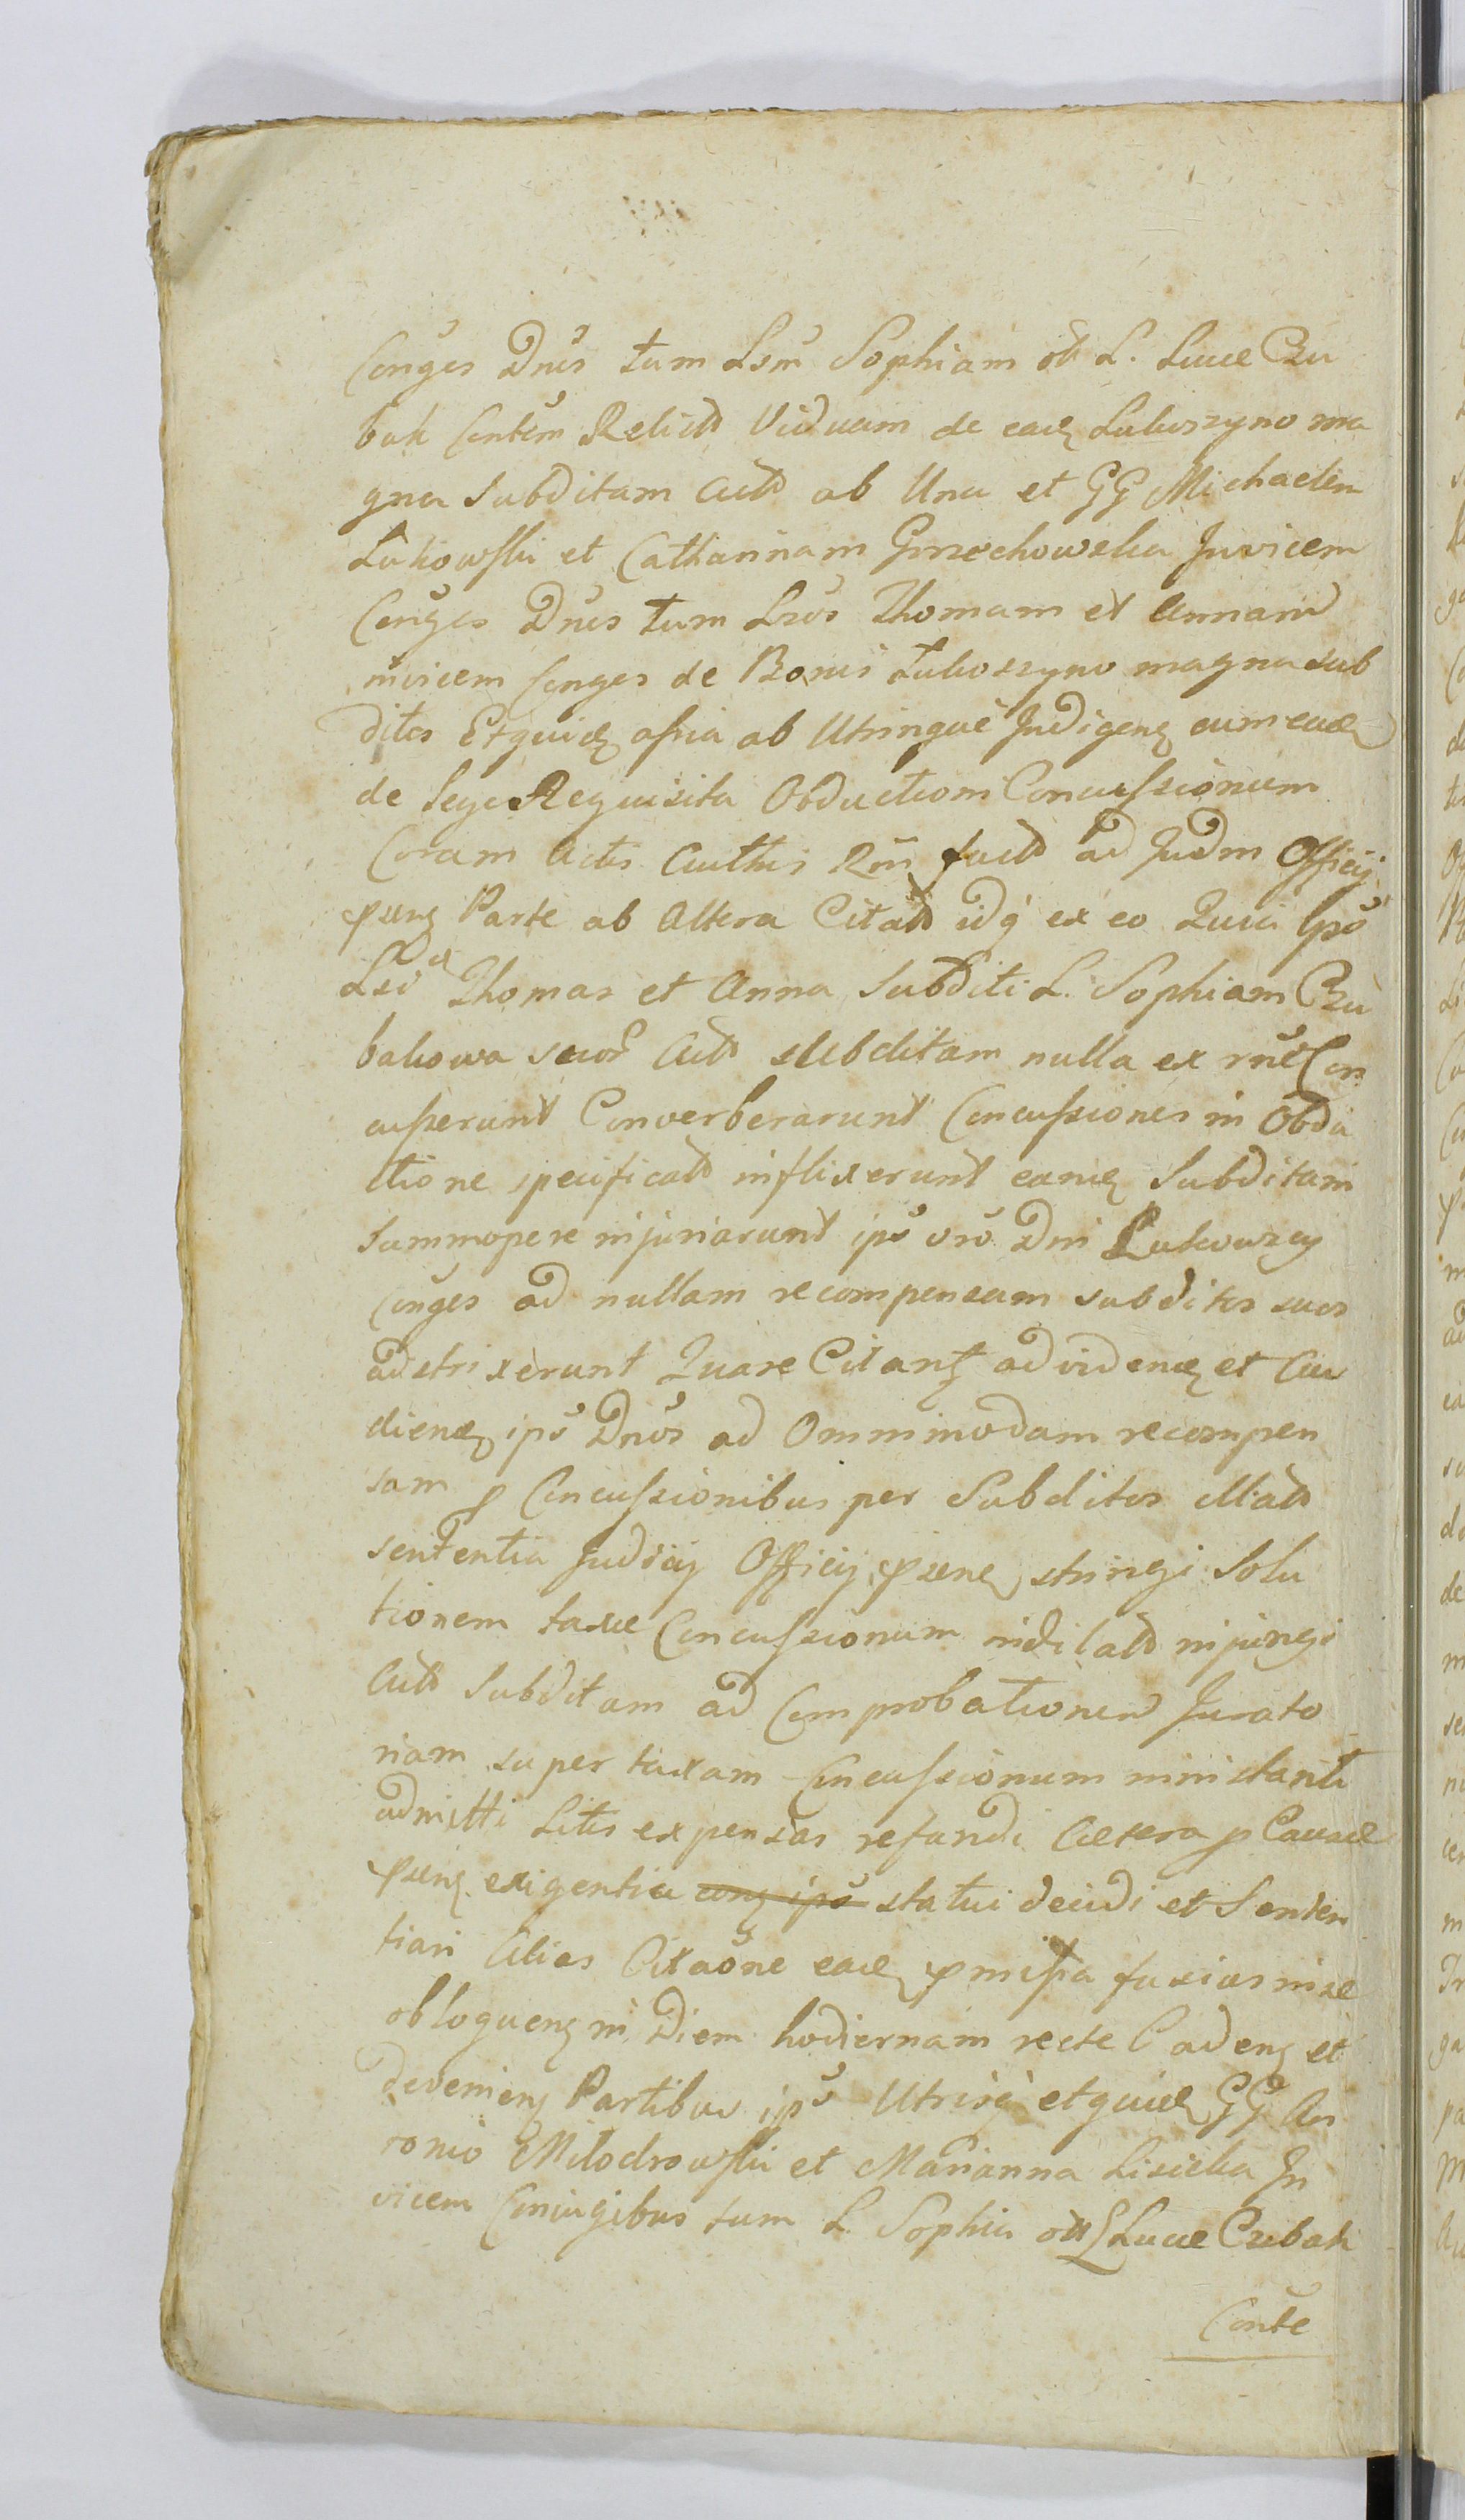 Conges Dnos tum Lsm Sophiam olt L. Lucæ Czu
bak Contem Relictā Viduam de eadē Lukoszyno ma
gna Subditam Actā ab Una et GG Michaelem
Łukowski et Catharinam Grzechowska Invicem
Conges Dnos tum Lsos Thomam et Annam
invicem Conges de Bonis Łukoszyno magna sub
ditos Et quidē asia ab Utrinque Indigenē cum eadē
de Lege Requisita Obductiom Concussionum
Coram Actis Authis Rm factā ad Judm Officij
pnsens Parte ab Altera Citatā idq ex eo Quia ipsi
Lsi Thomas et Anna Subditi L. Sophiam Czu
bakowa Actā subditam nulla ex rne Con
cusserunt Converberarunt Concussiones in Obdu
ctione specificatā inflixerunt eamdē Subditam
summopere injuriarunt ips vro Dni Łukowscy
Conges ad nullam recompensam subditos suos
adstrixerunt Quare Citantz ad videndz et Au
diendz ips Dnos ad Ommimodam recompen
sam p Concussionibus per Subditos illatā
sententia Judicij Officij pnsens stringi Solu
tionem taxæ Concussionum indilatā injungi
Actā Subditam ad Comprobationem Jurato
riam super taxam Concussionum ministranti
admitti Litis expensas refundi Cætera p Causæ
pnsens exigentia statui decidi et Senten
tiari Alias Citaone eadē pmissa fusius in se
obloquenz in Diem hodiernam recte Cadenz et
devenienz Partibus ips Utrisq et quidē GG An
ronio Milodrowski et Marianna Lisicka In
vicem Coniugibus tum L. Sophia olt L Lucæ Czubak
Conte